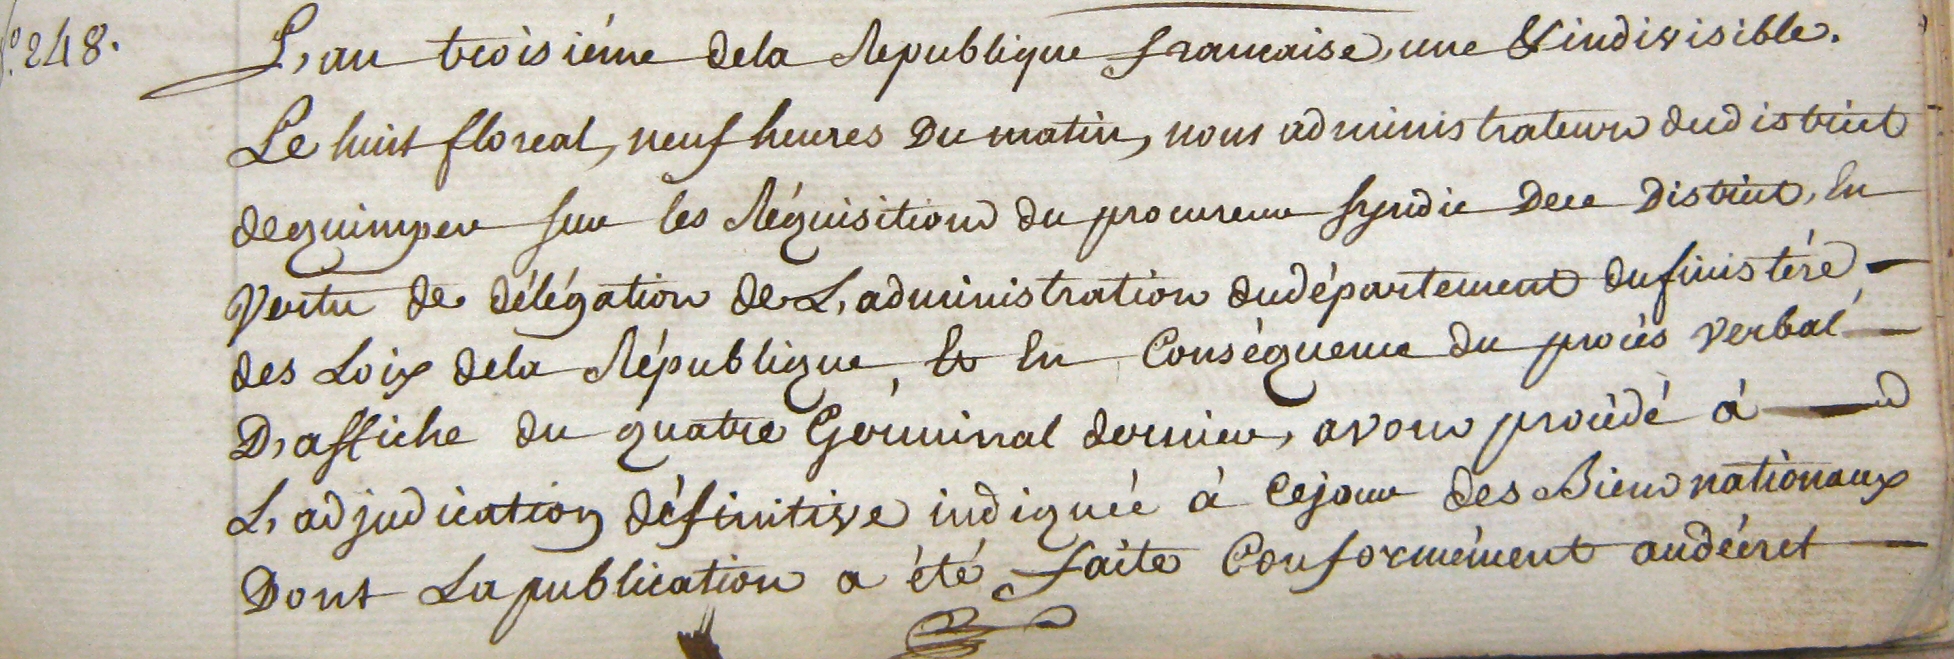 N.º 248.
L'an troisiéme dela République française, une & indivisible.
Le huit floréal, neuf heures du matin, nous administrateurs dudistrict
dequimper sur les Réquisitions du procureur syndic De ce District, En
Vertu de délégation de L'administration dudépartement dufinistére
des Loix dela République Et En Conséquence du procès verbal
D'affiche du quatre Gérminal dernier, avons procédé à
L'adjudication définitive indiquée à Cejour des Biens nationaux
Dont La publication a été faite Conformément audécret